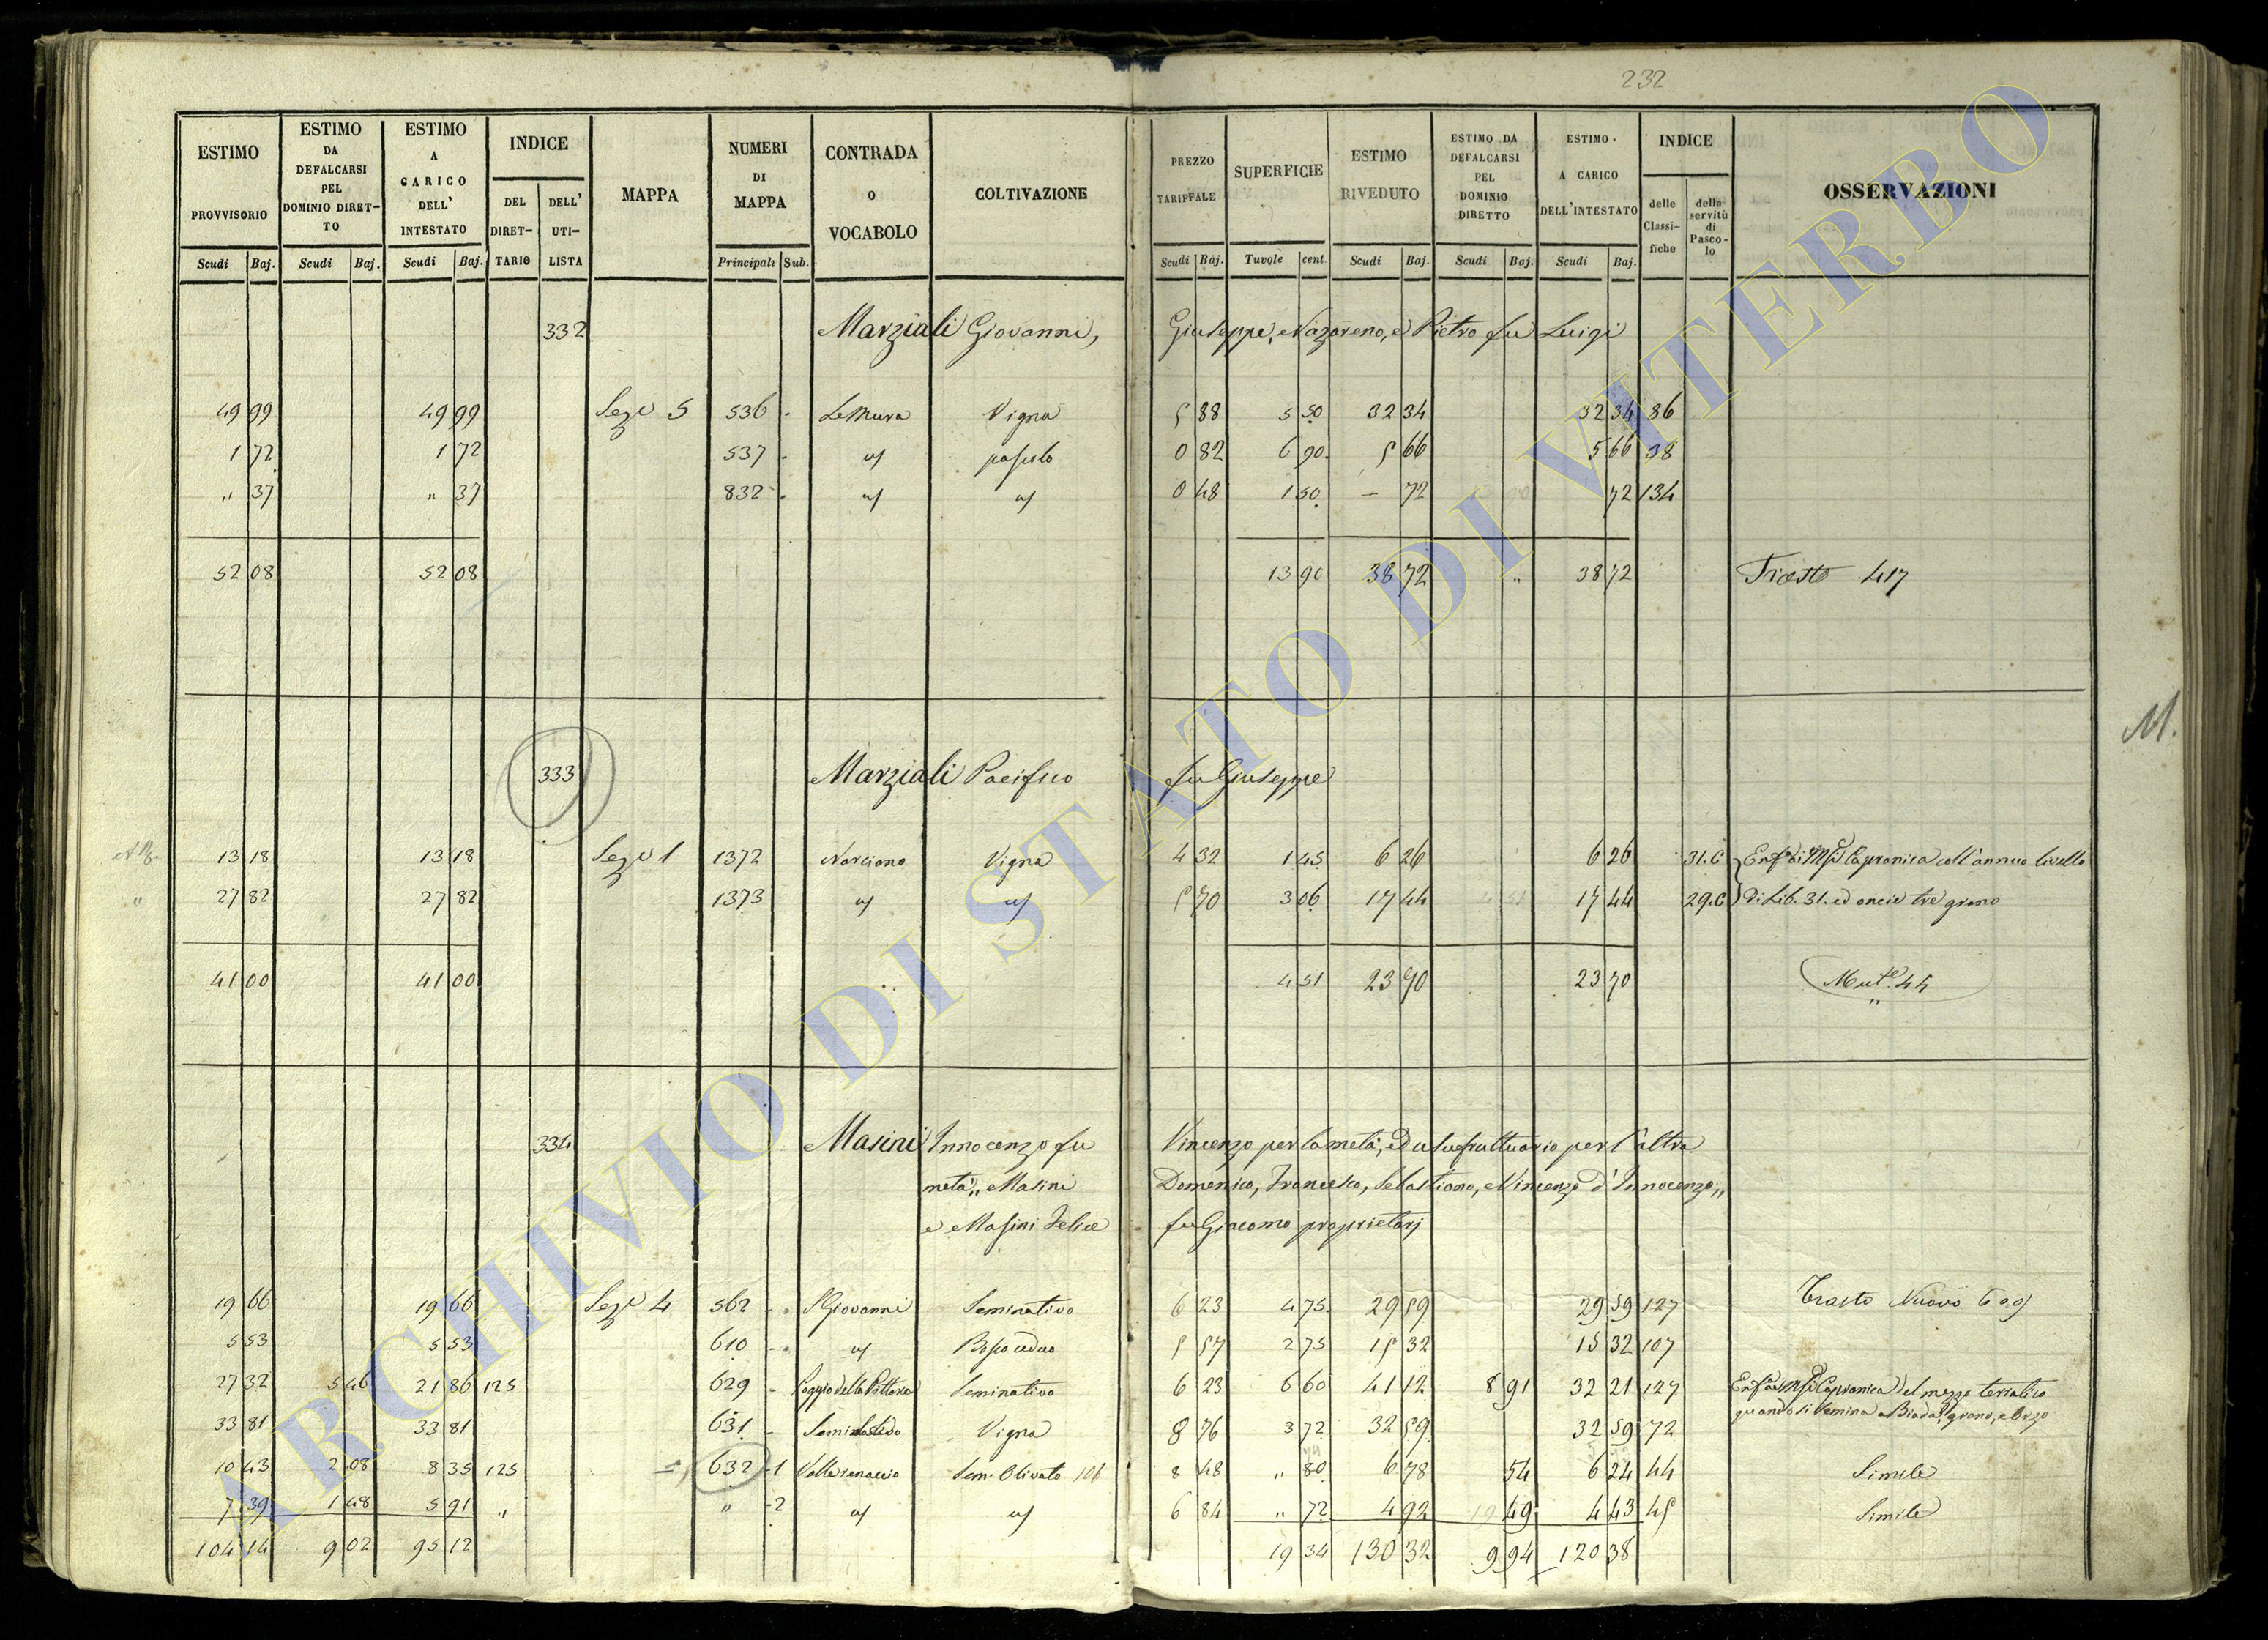 232
ESTIMO PROVVISORIO Scudi Baj. ESTIMO DA DEFALCARSI PEL DOMINIO DIRETTO Scudi Baj. ESTIMO A CARICO DELL' INTESTATO Scudi Baj. INDICE DEL DIRETTARIO DELL' UTILISTA MAPPA NUMERI DI MAPPA Principali Sub. CONTRADA O VOCABOLO COLTIVAZIONE PREZZO TARIFFALE Scudi Baj. SUPERFICIE Tavole cent. ESTIMO RIVEDUTO Scudi Baj. ESTIMO DA DEFALCARSI PEL DOMINIO DIRETTO Scudi Baj. ESTIMO A CARICO DELL'INTESTATO Scudi Baj. INDICE delle Classifiche della servitù di Pascolo OSSERVAZIONI
332 Marziali Giovanni, Giuseppe, Nazareno, e Pietro fu Luigi
49 99 49 99 Sezе 5 536 - Le Mura Vigna 5 88 5 50 32 34 32 34 86
1 72 1 72 537 - " pascolo 0 82 6 90 5 66 5 66 38
" 37 " 37 832 - " " 0 48 1 50 — 72 72 134
52 08 52 08 13 90 38 72 " 38 72 Trasto 417
M.
333 Marziali Pacifico fu Giuseppe
13 18 13 18 Sezе 1 1372 Norciano Vigna 4 32 1 45 6 26 6 26 31.C Enf. di Capranica coll'annuo livello
" 27 82 27 82 1373 " " 5 70 3 06 17 44 17 44 29.C di Lib. 31. ed oncie tre grano
41 00 41 00 4 51 23 70 23 70 Mut.e 45
334 Masini Innocenzo fu Vincenzo per la metà, ed usufruttuario per l'altra
metà,, Masini Domenico, Francesco, Sebastiano, e Vincenzo d'Innocenzo,,
e Masini Felice fu Giacomo proprietarj
19 66 19 66 Sezе 4 562 - S Giovanni Seminativo 6 23 4 75 29 59 29 59 127 Trasto Nuovo 609
5 53 5 53 610 - " Bosco ceduo 5 57 2 75 15 32 15 32 107
27 32 5 46 21 86 125 629 - Poggio della Seminativo 6 23 6 60 41 12 8 91 32 21 127 Enf. di Capranica del mezzo terratico
quando si semina a Biada, grano, e Orzo
33 81 33 81 631 - Vigna 8 76 3 72 32 59 32 59 72
10 43 2 08 8 35 125 632 -1 Sem. Olivato 106 8 48 " 80 6 78 54 6 24 44 Simile
7 39 1 48 5 91 " " -2 " " 6 84 " 72 4 92 49 4 43 45 Simile
104 14 9 02 95 12 19 34 130 32 9 94 120 38
ARCHIVIO DI STATO DI VITERBO